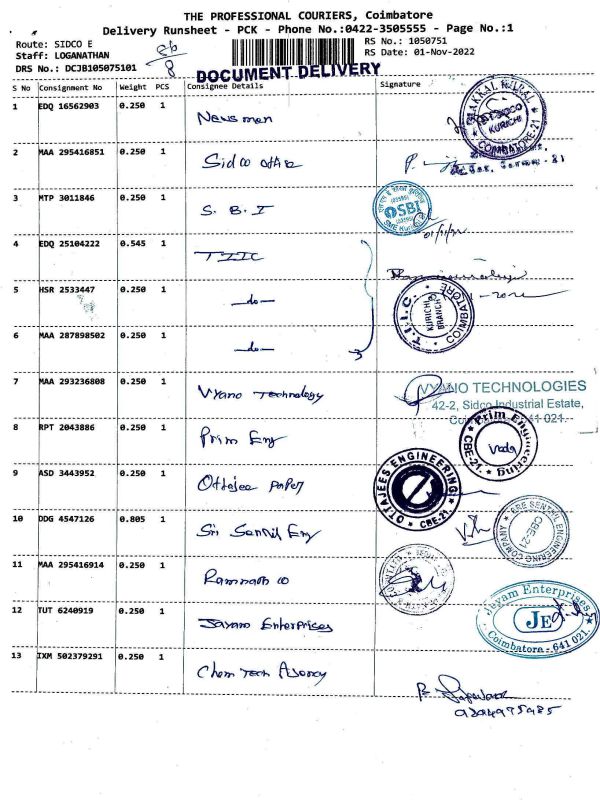 THE PROFESSIONAL COURIERS, Coimbatore
Delivery Runsheet - PCK - Phone No.:0422-3505555 - Page No.:1
Route: SIDCO E
Staff: LOGANATHAN
DRS No.: DCJB105075101
RS No.: 1050751
RS Date: 01-Nov-2022
DOCUMENT DELIVERY
S No Consignment No Weight PCS Consignee Details Signature
1 EDQ 16562903 0.250 1 Newsman
SIDCO KURICHI COIMBATORE-21
2 MAA 295416851 0.250 1 Sidco office
3 MTP 3011846 0.250 1 S. B. I
SBI
4 EDQ 25104222 0.545 1 TIIC
5 HSR 2533447 0.250 1 -do-
T.I.I.C. KURICHI BRANCH COIMBATORE
6 MAA 287898502 0.250 1 -do-
7 MAA 293236808 0.250 1 Vyano Technology
VYANO TECHNOLOGIES
42-2, Sidco Industrial Estate,
641 021.
8 RPT 2043886 0.250 1 Prim Eng
Prim Engineering CBE-21.
9 ASD 3443952 0.250 1 Ottajee
OTTAJEES ENGINEERING CBE-21.
10 DDG 4547126 0.805 1 Sri Senthil Eng
ENGINEERING COMPANY CBE-21
11 MAA 295416914 0.250 1
12 TUT 6240919 0.250 1 Jayam Enterprises
Jayam Enterprises
JE
Coimbatore - 641 021.
13 IXM 502379291 0.250 1 Chem Tech Agency